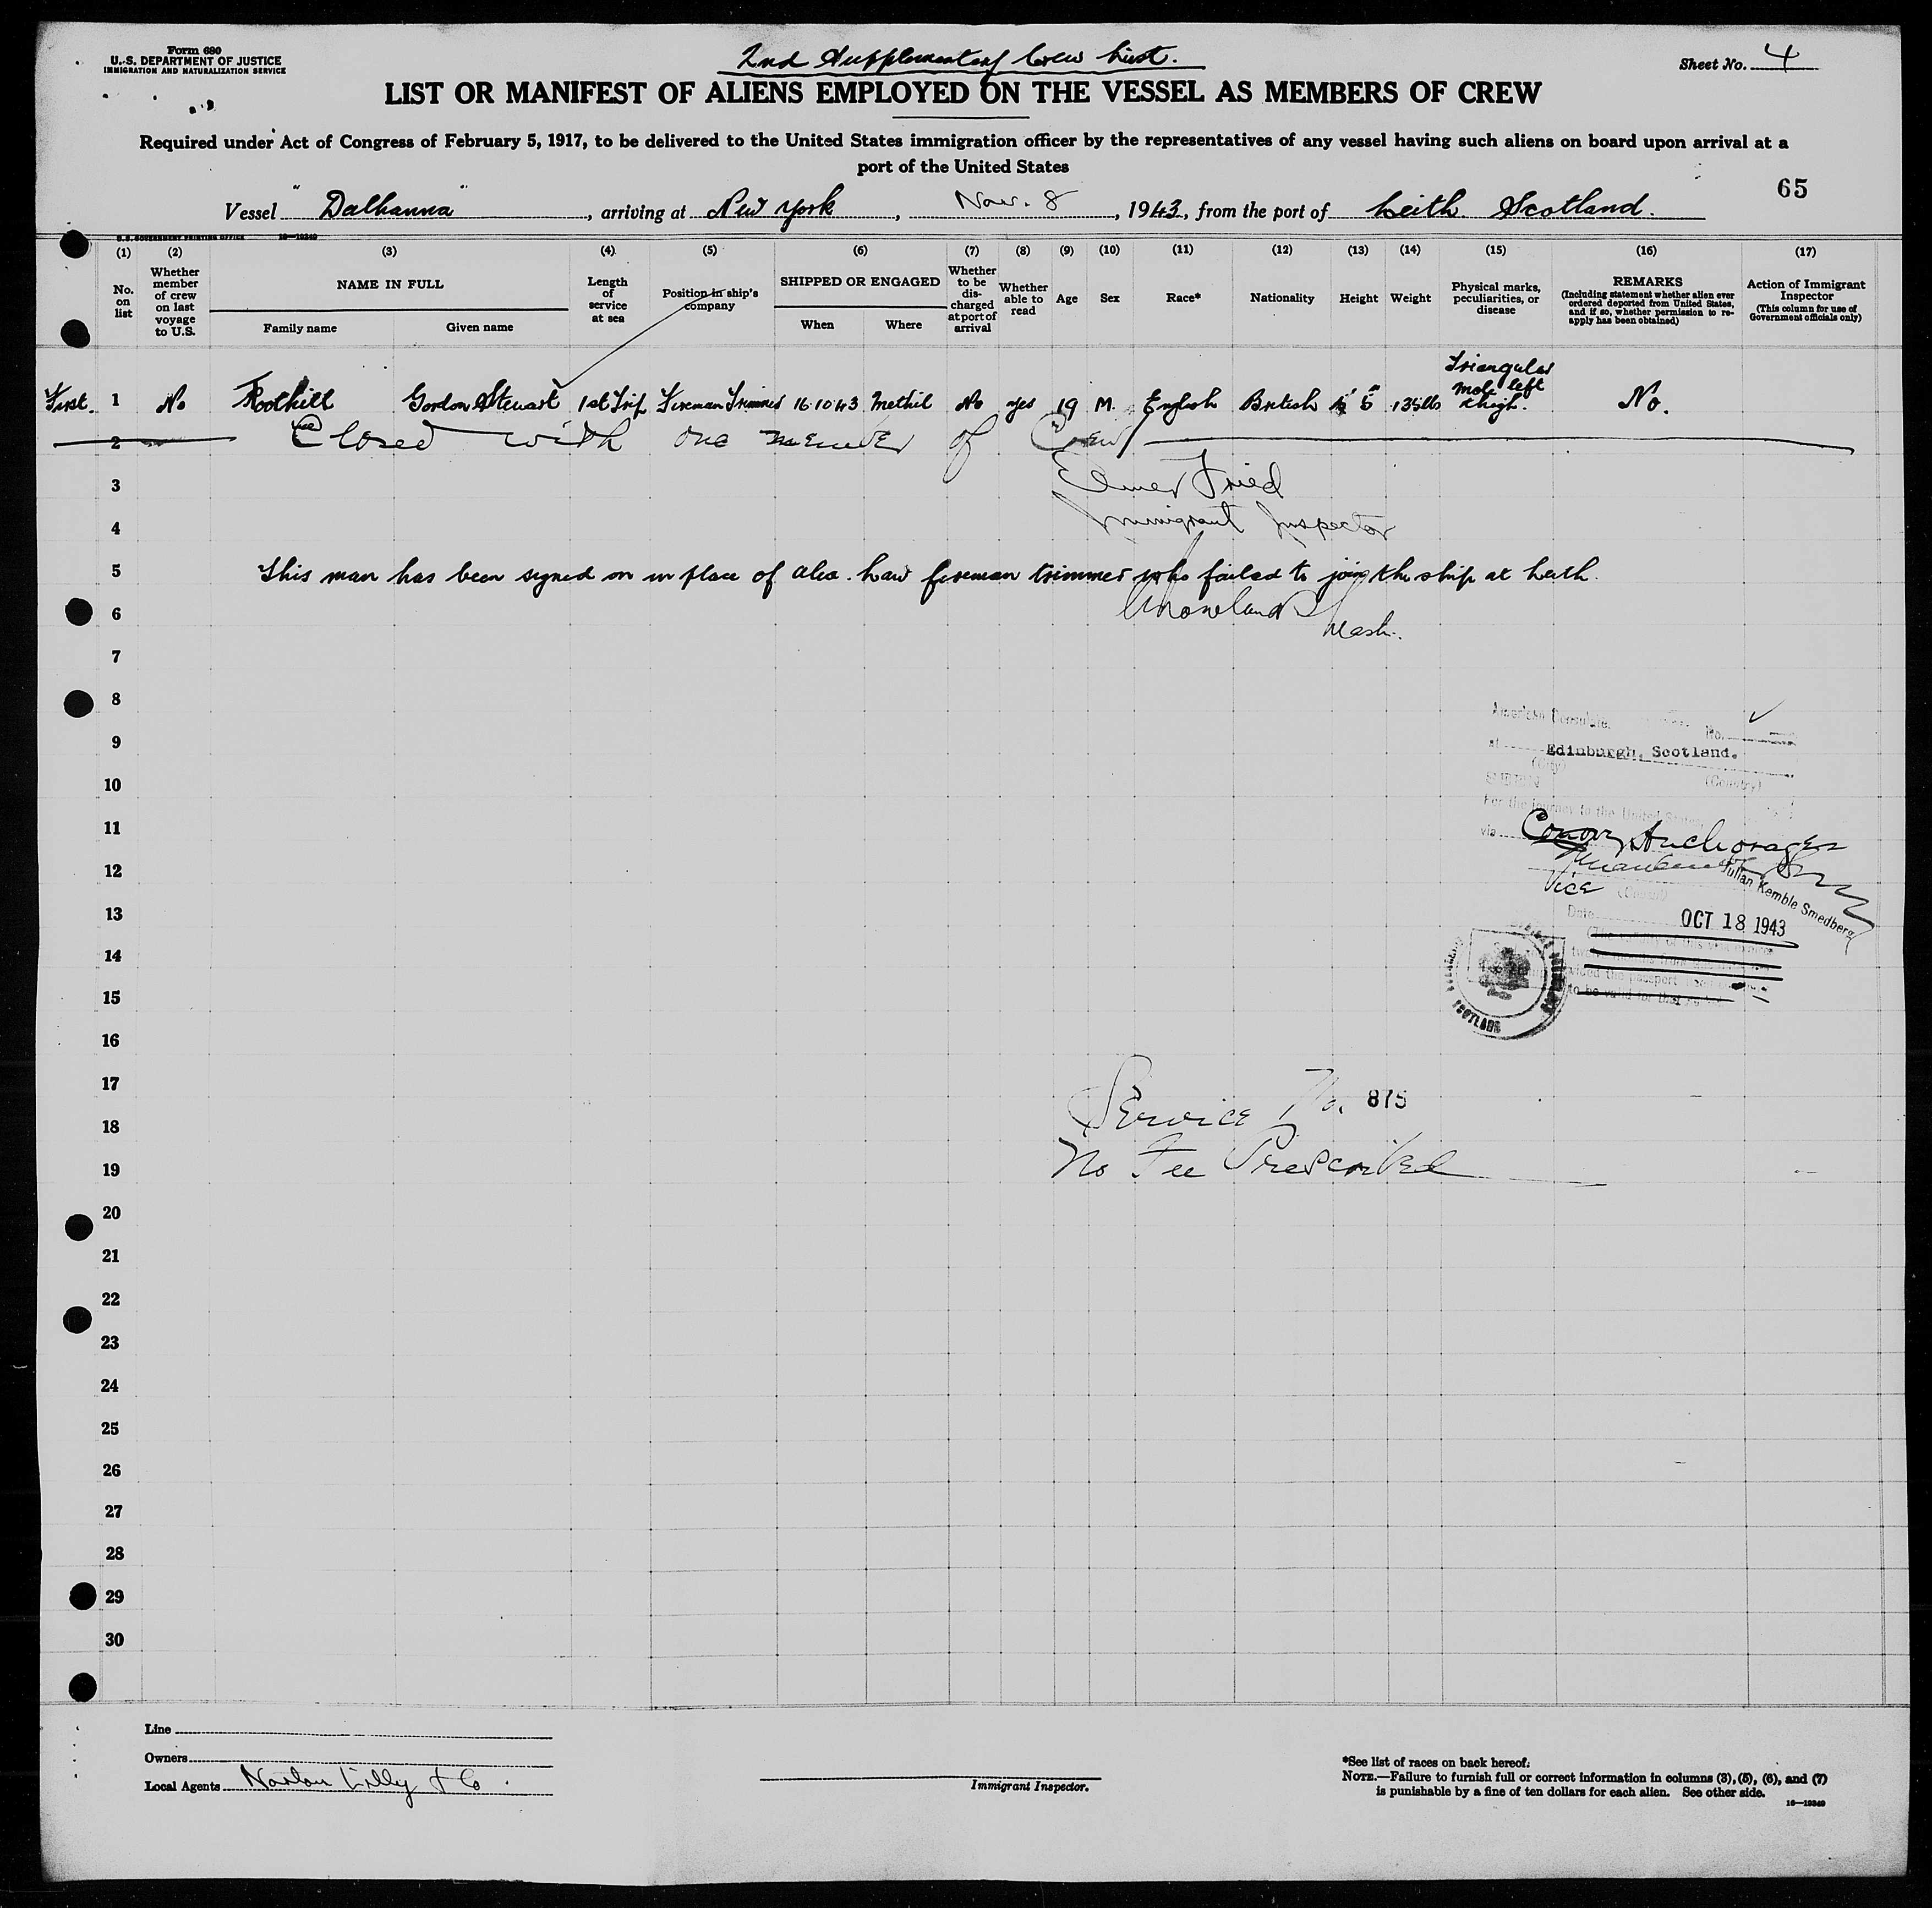 Form 680
U. S. DEPARTMENT OF JUSTICE
IMMIGRATION AND NATURALIZATION SERVICE
2nd Supplementary Crew List.
Sheet No. 4
LIST OR MANIFEST OF ALIENS EMPLOYED ON THE VESSEL AS MEMBERS OF CREW
Required under Act of Congress of February 5, 1917, to be delivered to the United States immigration officer by the representatives of any vessel having such aliens on board upon arrival at a
port of the United States
65
Vessel "Dalhanna", arriving at New York, Nov. 8, 1943, from the port of Leith Scotland.
U. S. GOVERNMENT PRINTING OFFICE 16—19349
(1) (2) (3) (4) (5) (6) (7) (8) (9) (10) (11) (12) (13) (14) (15) (16) (17)
No. on list
Whether member of crew on last voyage to U.S.
NAME IN FULL
Family name Given name
Length of service at sea
Position in ship's company
SHIPPED OR ENGAGED
When Where
Whether to be discharged at port of arrival
Whether able to read
Age
Sex
Race*
Nationality
Height
Weight
Physical marks, peculiarities, or disease
REMARKS
(Including statement whether alien ever ordered deported from United States, and if so, whether permission to re-apply has been obtained)
Action of Immigrant Inspector
(This column for use of Government officials only)
First. 1 No Foothill Gordon Stewart 1st Trip Fireman Trimmer 16.10.43 Methil No yes 19 M. English British 5' 5" 135 lbs Triangular mole left thigh. No.
2 Closed with one member of Crew
3 Elmer Fried
4 Immigrant Inspector
5 This man has been signed on in place of Alex. Law fireman trimmer who failed to join the ship at Leith.
6
Mash.
7
8
American Consulate
No.
9
at Edinburgh, Scotland.
(City) (Country)
10
For the journey to the United States
11
via Anchorage
12
Vice (Consul)
Julian Kemble Smedberg
13
Date OCT 18 1943
14
15
SCOTLAND
16
17
Service No. 875
18
No Fee Prescribed
19
20
21
22
23
24
25
26
27
28
29
30
Line
Owners
Local Agents Norton Lilly & Co.
Immigrant Inspector.
*See list of races on back hereof.
NOTE.—Failure to furnish full or correct information in columns (3), (5), (6), and (7)
is punishable by a fine of ten dollars for each alien. See other side.
16—19349